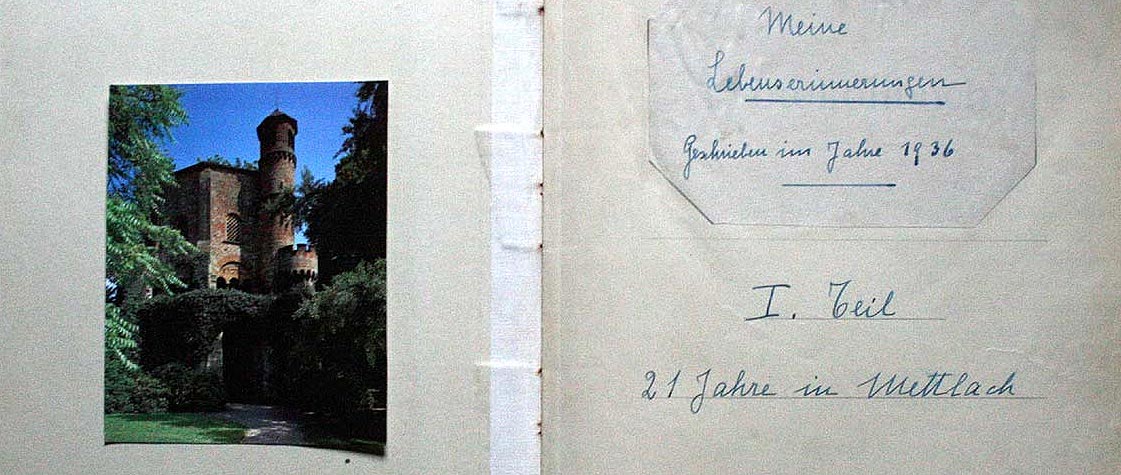 Meine
Lebenserinnerungen
Geschrieben im Jahre 1936
I. Teil
21 Jahre in Mettlach